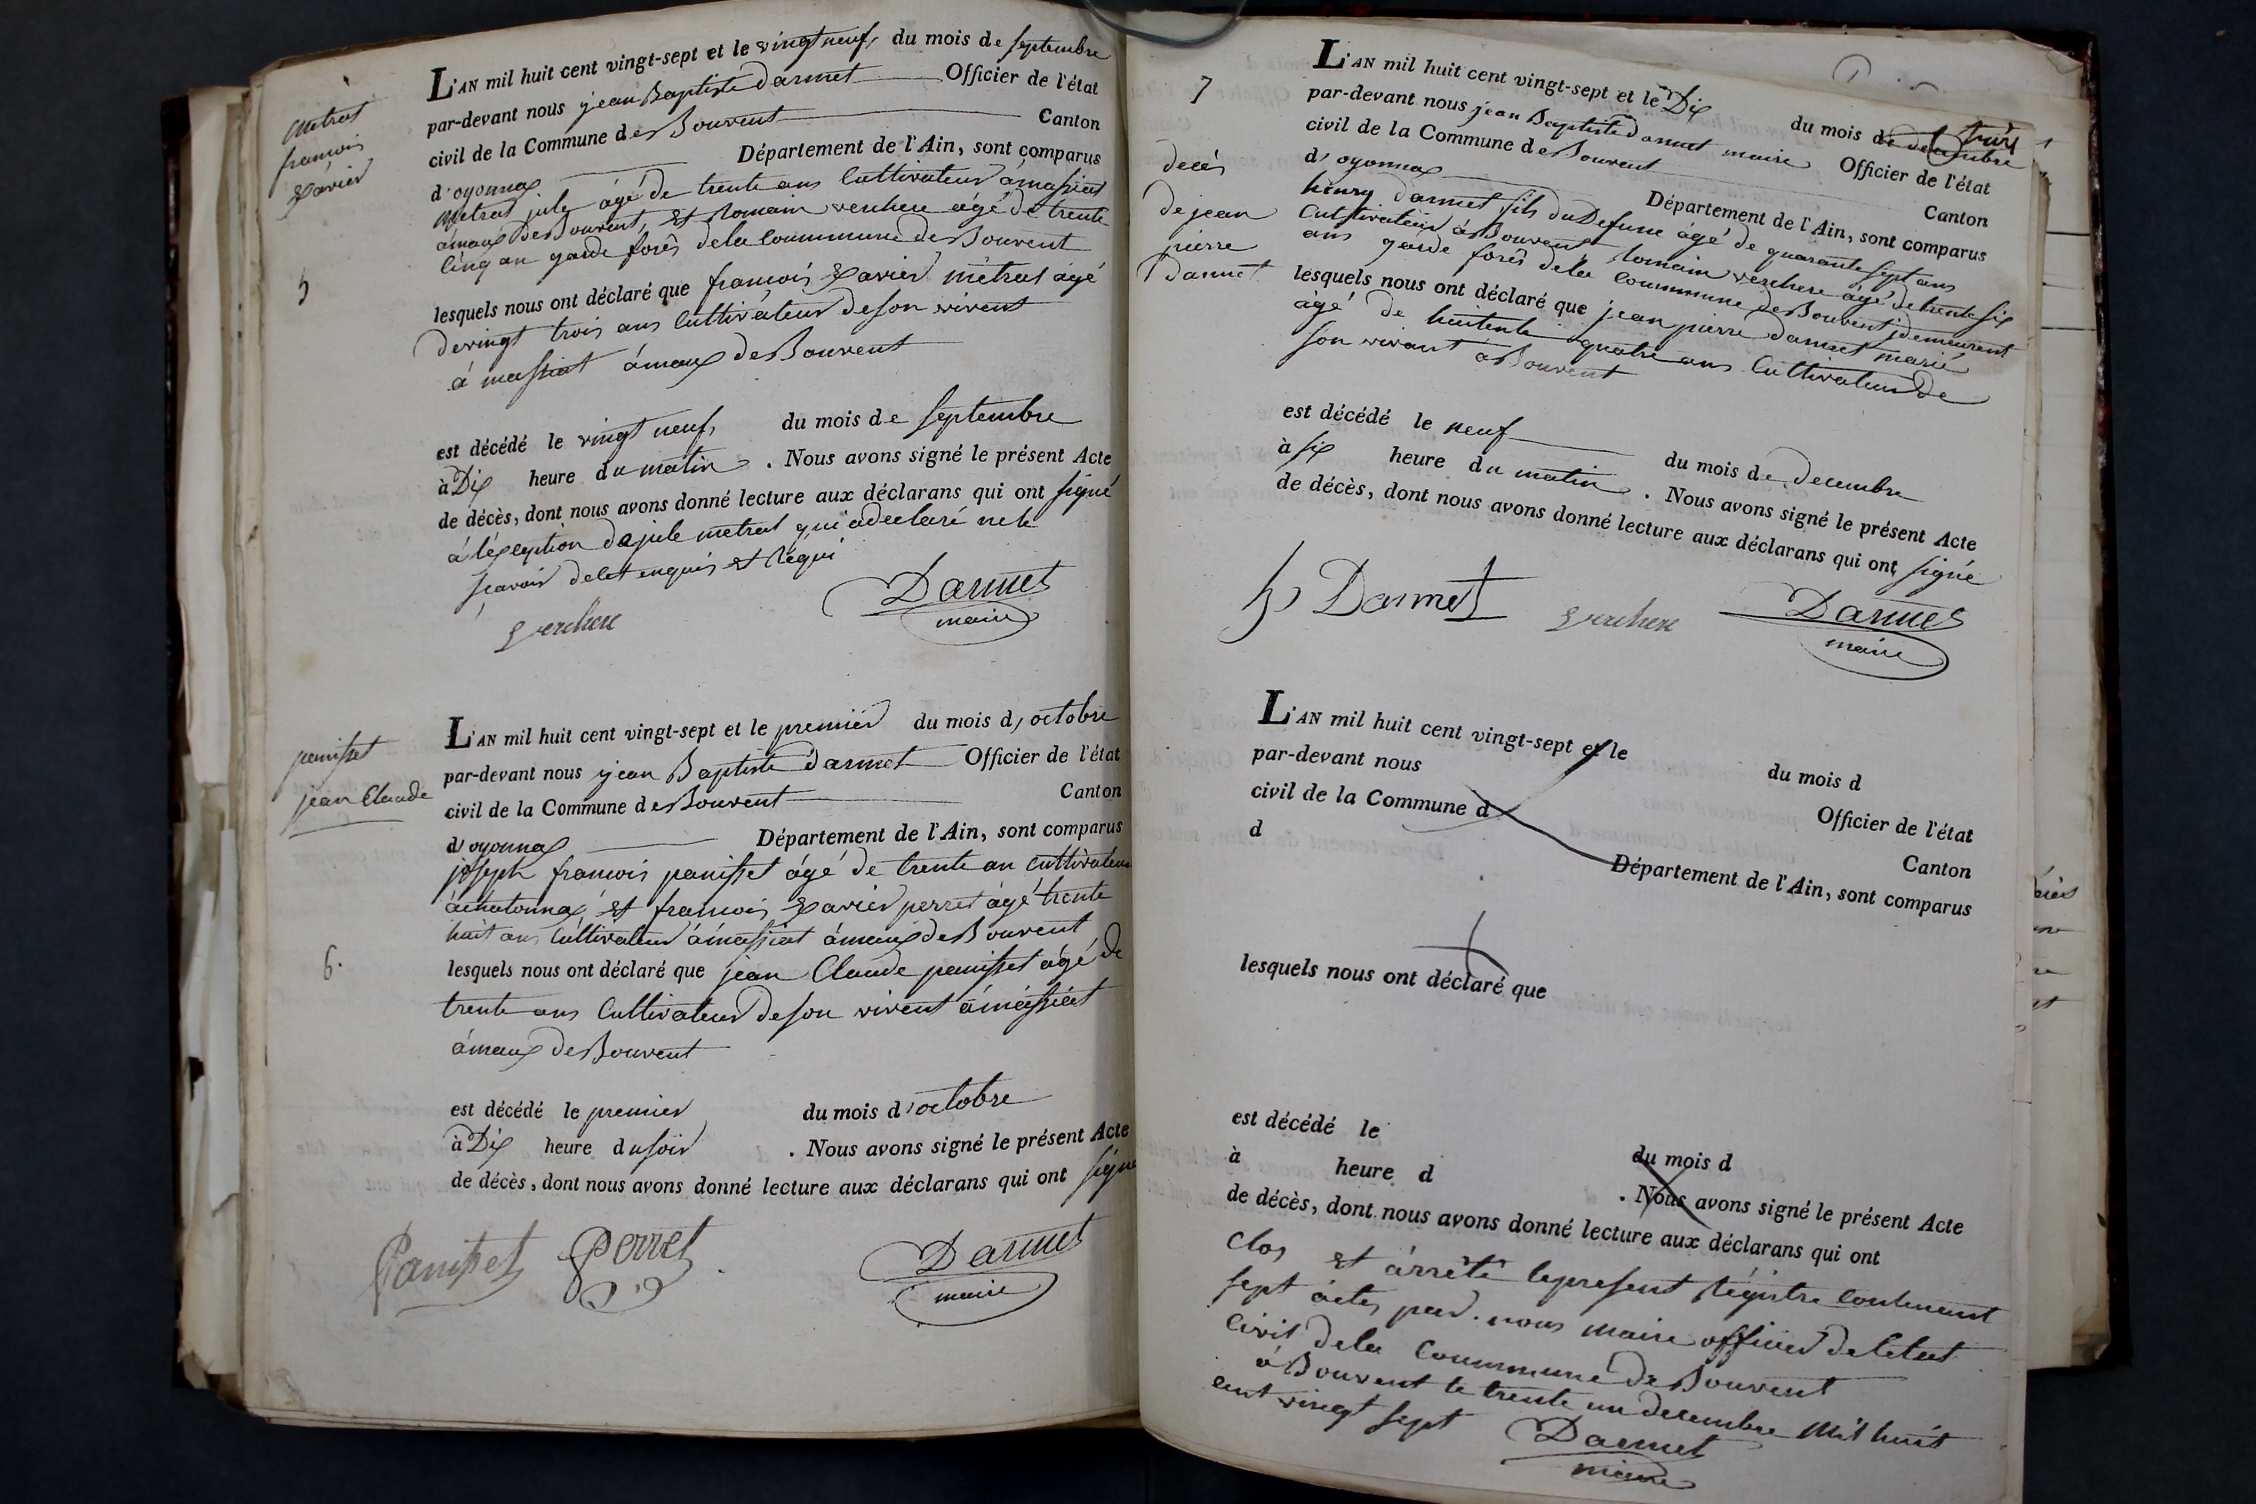 metrat
françois
xavier
5
L'AN mil huit cent vingt-sept et le vingt neuf, du mois de septembre
par-devant nous jean Baptiste darmet Officier de l'état
civil de la Commune de Bouvent Canton
d'oyonnax Département de l'Ain, sont comparus
metrat jule âgé de trente ans Cultivateur a massiat
ámaux de Bouvent, et Romain verchere âgé de trente
cinq an garde forês de la Coummune de Bouvent
lesquels nous ont déclaré que françois xavier métrat âgé
de vingt trois ans Cultivateur de son vivent
á massiat ámaux de Bouvent
est décédé le vingt neuf, du mois de septembre
à Dix heure du matin . Nous avons signé le présent Acte
de décès, dont nous avons donné lecture aux déclarans qui ont signé
á léxception de jule metrat qui a declaré ne le
scavoir de cet enquis et Réqui
verchere
Darmet
maire
panisset
jean Claude
6.
L'AN mil huit cent vingt-sept et le premier du mois d, octobre
par-devant nous jean Baptiste darmet Officier de l'état
civil de la Commune de Bouvent Canton
d'oyonnax Département de l'Ain, sont comparus
joseph françois panisset âgé de trente an Cultivateur
áchatonnax et françois xavier perret âgé trente
huit ans Cultivateur ámassiat ámaux de Bouvent
lesquels nous ont déclaré que jean Claude panisset âgé de
trente ans Cultivateur de son vivent ámassiat
ámaux de Bouvent
est décédé le premier du mois d'octobre
à Dix heure du soir . Nous avons signé le présent Acte
de décès, dont nous avons donné lecture aux déclarans qui ont signé
Panisset Perret
Darmet
maire
7
decés
de jean
pierre
Darmet
L'AN mil huit cent vingt-sept et le Dix du mois de decembre
par-devant nous jean Baptiste Darmet maire Officier de l'état
civil de la Commune de Bouvent Canton
d'oyonnax Département de l'Ain, sont comparus
henry darmet fils du Defunc âgé de quarante sept ans
Cultivateur á Bouvent Romain verchere âgé de trente six
ans garde forês de la Coummune de Bouvent y demeurent
lesquels nous ont déclaré que jean pierre darmet marié
âgé de huitente quatre ans Cultivateur de
son vivant á Bouvent
est décédé le neuf du mois de decembre
à six heure du matin . Nous avons signé le présent Acte
de décès, dont nous avons donné lecture aux déclarans qui ont signé
h Darmet verchere Darmet
maire
L'AN mil huit cent vingt-sept et le du mois d
par-devant nous Officier de l'état
civil de la Commune d Canton
d Département de l'Ain, sont comparus
lesquels nous ont déclaré que
est décédé le du mois d
à heure d . Nous avons signé le présent Acte
de décès, dont nous avons donné lecture aux déclarans qui ont
Clos et árrêté le present Régistre Contenant
sept áctes par nous maire officier de létat
Civil de la Coummune de Bouvent
á Bouvent le trente un decembre mil huit
cent vingt sept
Darmet
maire